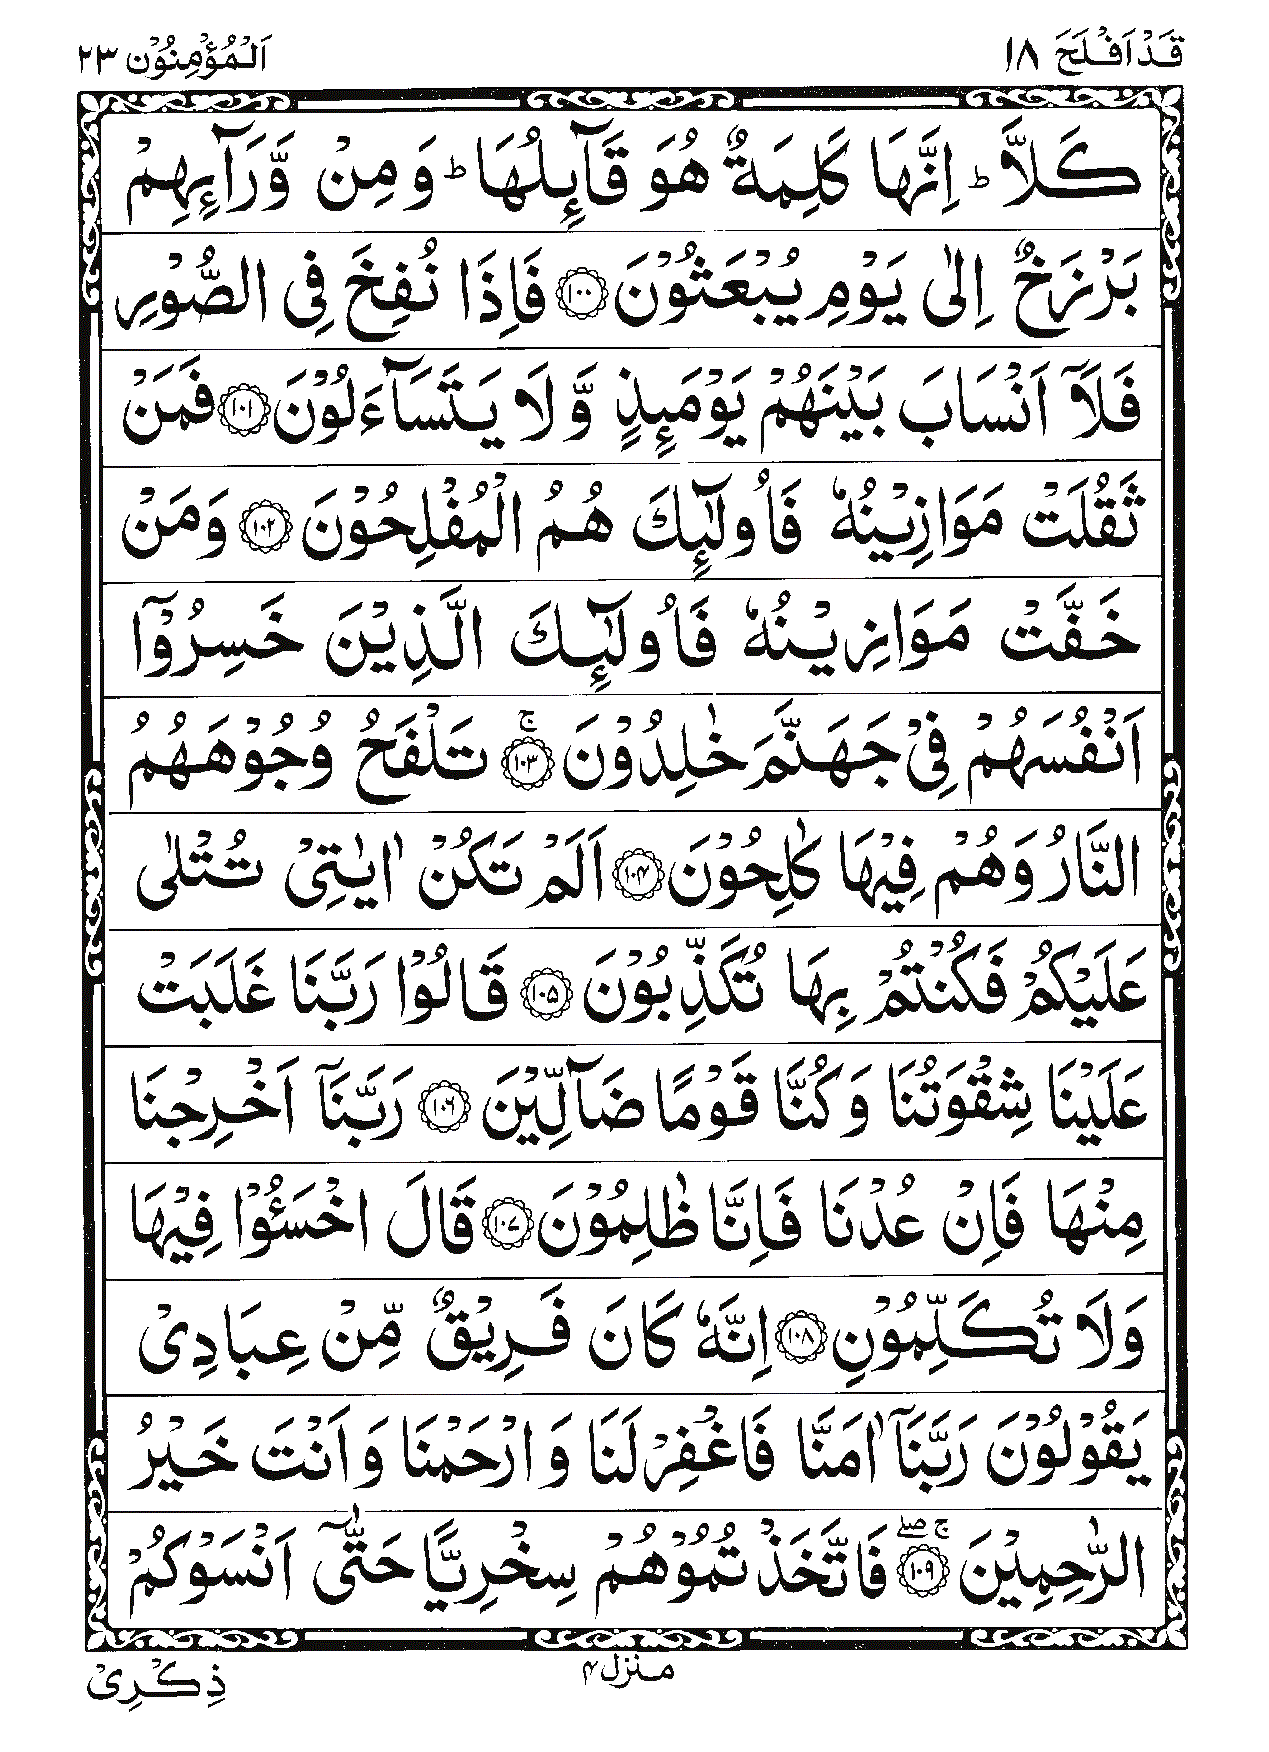 قَدْ اَفْلَحَ ۱۸
اَلْمُؤْمِنُوْن ۲۳
كَلَّا ؕ اِنَّهَا كَلِمَةٌ هُوَ قَآىِٕلُهَا ؕ وَ مِنْ وَّرَآىِٕهِمْ
بَرْزَخٌ اِلٰى يَوْمِ يُبْعَثُوْنَ ﴿۱۰۰﴾ فَاِذَا نُفِخَ فِى الصُّوْرِ
فَلَاۤ اَنْسَابَ بَيْنَهُمْ يَوْمَىِٕذٍ وَّ لَا يَتَسَآءَلُوْنَ ﴿۱۰۱﴾ فَمَنْ
ثَقُلَتْ مَوَازِيْنُهٗ فَاُولٰٓىِٕكَ هُمُ الْمُفْلِحُوْنَ ﴿۱۰۲﴾ وَمَنْ
خَفَّتْ مَوَازِيْنُهٗ فَاُولٰٓىِٕكَ الَّذِيْنَ خَسِرُوْۤا
اَنْفُسَهُمْ فِيْ جَهَنَّمَ خٰلِدُوْنَ ﴿۱۰۳﴾ ۚ تَلْفَحُ وُجُوْهَهُمُ
النَّارُ وَهُمْ فِيْهَا كٰلِحُوْنَ ﴿۱۰۴﴾ اَلَمْ تَكُنْ اٰيٰتِيْ تُتْلٰى
عَلَيْكُمْ فَكُنْتُمْ بِهَا تُكَذِّبُوْنَ ﴿۱۰۵﴾ قَالُوْا رَبَّنَا غَلَبَتْ
عَلَيْنَا شِقْوَتُنَا وَكُنَّا قَوْمًا ضَآلِّيْنَ ﴿۱۰۶﴾ رَبَّنَاۤ اَخْرِجْنَا
مِنْهَا فَاِنْ عُدْنَا فَاِنَّا ظٰلِمُوْنَ ﴿۱۰۷﴾ قَالَ اخْسَـُٔوْا فِيْهَا
وَلَا تُكَلِّمُوْنِ ﴿۱۰۸﴾ اِنَّهٗ كَانَ فَرِيْقٌ مِّنْ عِبَادِيْ
يَقُوْلُوْنَ رَبَّنَاۤ اٰمَنَّا فَاغْفِرْ لَنَا وَ ارْحَمْنَا وَ اَنْتَ خَيْرُ
الرّٰحِمِيْنَ ﴿۱۰۹﴾ ۚۖ فَاتَّخَذْتُمُوْهُمْ سِخْرِيًّا حَتّٰۤى اَنْسَوْكُمْ
منزل ۴
ذِكْرِيْ